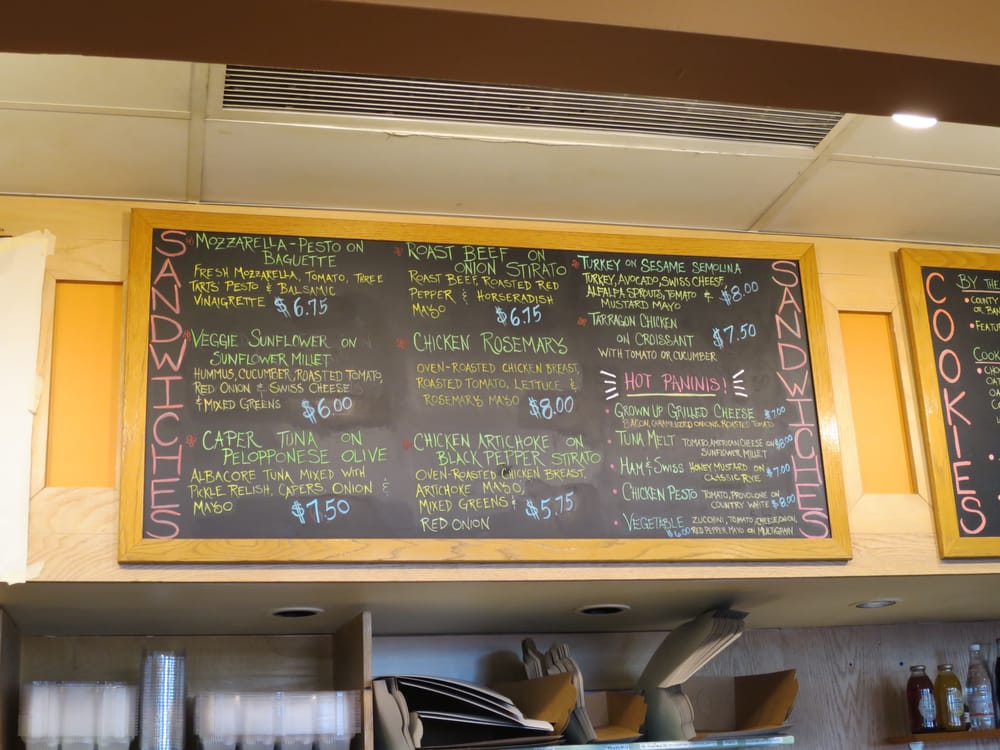 SANDWICHES
MOZZARELLA-PESTO ON
BAGUETTE
FRESH MOZZARELLA, TOMATO, THREE
TARTS' PESTO & BALSAMIC
VINAIGRETTE $6.75
VEGGIE SUNFLOWER ON
SUNFLOWER MILLET
HUMMUS, CUCUMBER, ROASTED TOMATO,
RED ONION & SWISS CHEESE
& MIXED GREENS $6.00
CAPER TUNA ON
PELOPPONESE OLIVE
ALBACORE TUNA MIXED WITH
PICKLE RELISH, CAPERS, ONION &
MAYO $7.50
ROAST BEEF ON
ONION STIRATO
ROAST BEEF, ROASTED RED
PEPPER & HORSERADISH
MAYO $6.75
CHICKEN ROSEMARY
OVEN-ROASTED CHICKEN BREAST,
ROASTED TOMATO, LETTUCE &
ROSEMARY MAYO $8.00
CHICKEN ARTICHOKE ON
BLACK PEPPER STIRATO
OVEN-ROASTED CHICKEN BREAST,
ARTICHOKE MAYO,
MIXED GREENS & $5.75
RED ONION
TURKEY ON SESAME SEMOLINA
TURKEY, AVOCADO, SWISS CHEESE,
ALFALFA SPROUTS, TOMATO & $8.00
MUSTARD MAYO
TARRAGON CHICKEN
ON CROISSANT $7.50
WITH TOMATO OR CUCUMBER
HOT PANINIS!
• GROWN UP GRILLED CHEESE $7.00
BACON, CARAMELIZED ONIONS, ROASTED TOMATO
• TUNA MELT TOMATO, AMERICAN CHEESE ON $8.00
SUNFLOWER MILLET
• HAM & SWISS HONEY MUSTARD ON $7.00
CLASSIC RYE
• CHICKEN PESTO TOMATO, PROVOLONE ON
COUNTRY WHITE $8.00
• VEGETABLE ZUCCHINI, TOMATO, CHEESE, ONION,
$6.00 RED PEPPER MAYO ON MULTIGRAIN
SANDWICHES
COOKIES
BY THE
• COUNTY
OR BAN
• FEATU
COOK
• CHO
OA